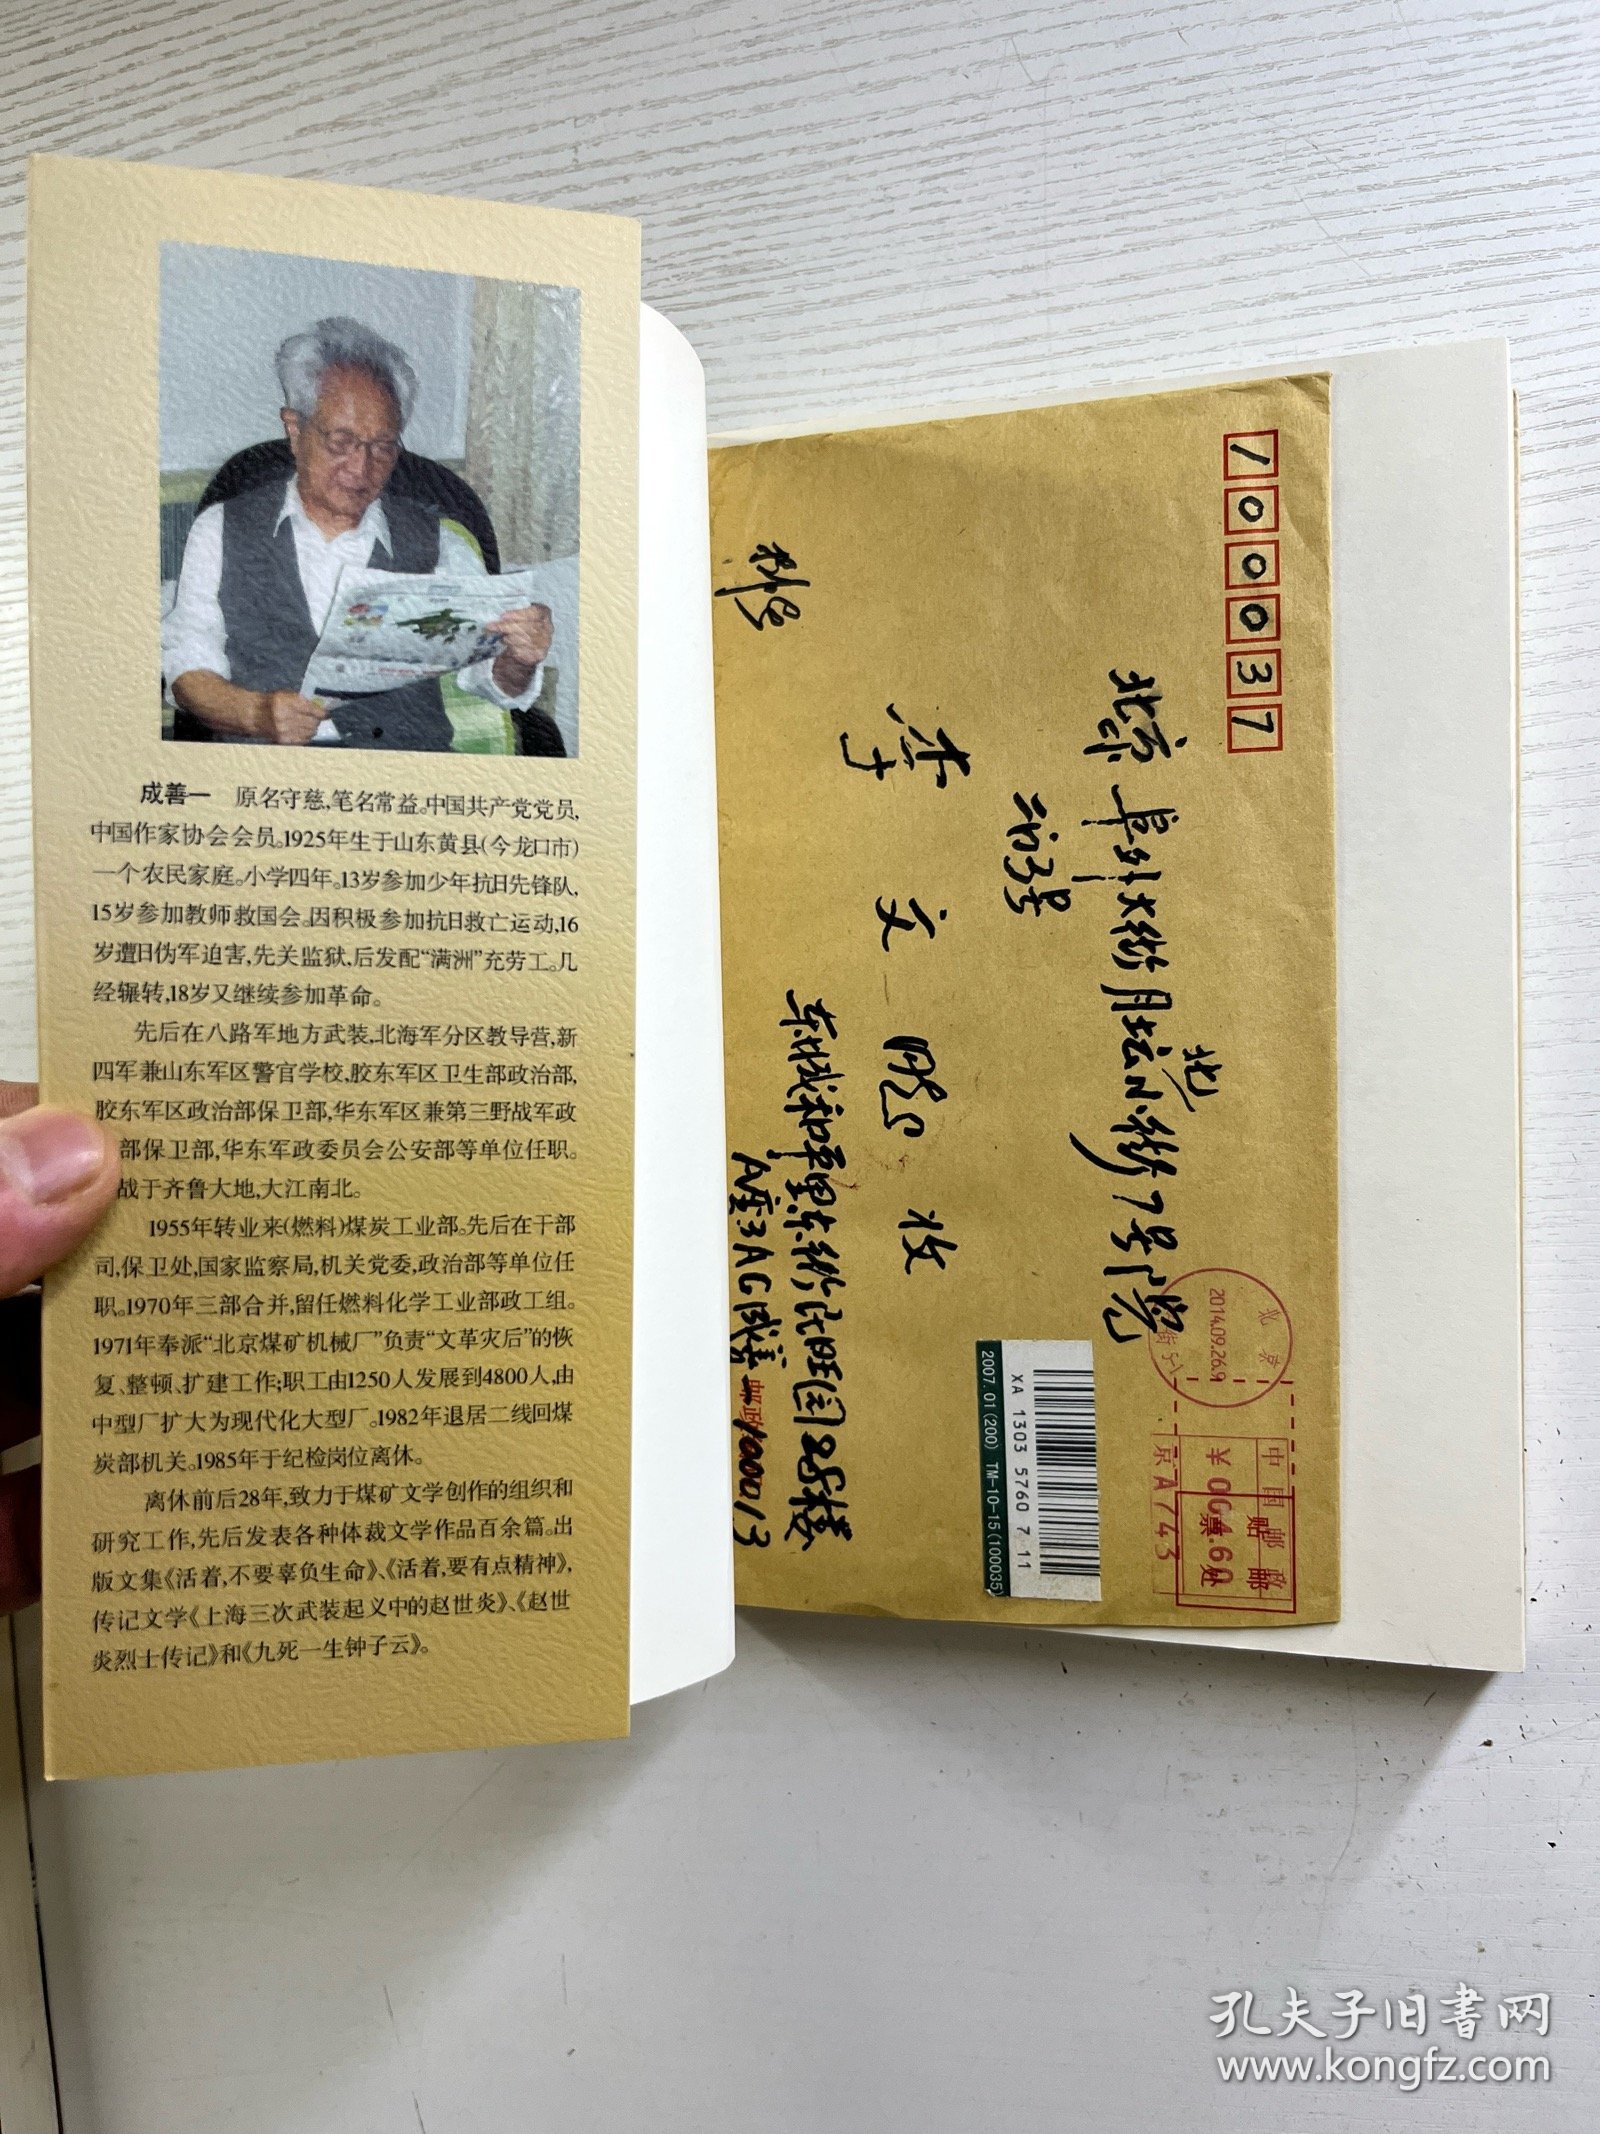 成善一　原名守慈,笔名常益。中国共产党党员,
中国作家协会会员。1925年生于山东黄县(今龙口市)
一个农民家庭。小学四年。13岁参加少年抗日先锋队,
15岁参加教师救国会。因积极参加抗日救亡运动,16
岁遭日伪军迫害,先关监狱,后发配“满洲”充劳工。几
经辗转,18岁又继续参加革命。
先后在八路军地方武装,北海军分区教导营,新
四军兼山东军区警官学校,胶东军区卫生部政治部,
胶东军区政治部保卫部,华东军区兼第三野战军政
部保卫部,华东军政委员会公安部等单位任职。
战于齐鲁大地,大江南北。
1955年转业来(燃料)煤炭工业部。先后在干部
司,保卫处,国家监察局,机关党委,政治部等单位任
职。1970年三部合并,留任燃料化学工业部政工组。
1971年奉派“北京煤矿机械厂”负责“文革灾后”的恢
复、整顿、扩建工作;职工由1250人发展到4800人,由
中型厂扩大为现代化大型厂。1982年退居二线回煤
炭部机关。1985年于纪检岗位离休。
离休前后28年,致力于煤矿文学创作的组织和
研究工作,先后发表各种体裁文学作品百余篇。出
版文集《活着,不要辜负生命》、《活着,要有点精神》,
传记文学《上海三次武装起义中的赵世炎》、《赵世
炎烈士传记》和《九死一生钟子云》。
100037
北京阜外大街月坛北小街7号院
李文 收
东城和平里东街民旺园28号楼
A座3AG成善一
邮政100013
北京
2014.09.26.9
中国邮政
京A1743
XA 1303 5760 7 11
2007.01(200) TM-10-15(100035)
孔夫子旧书网
www.kongfz.com